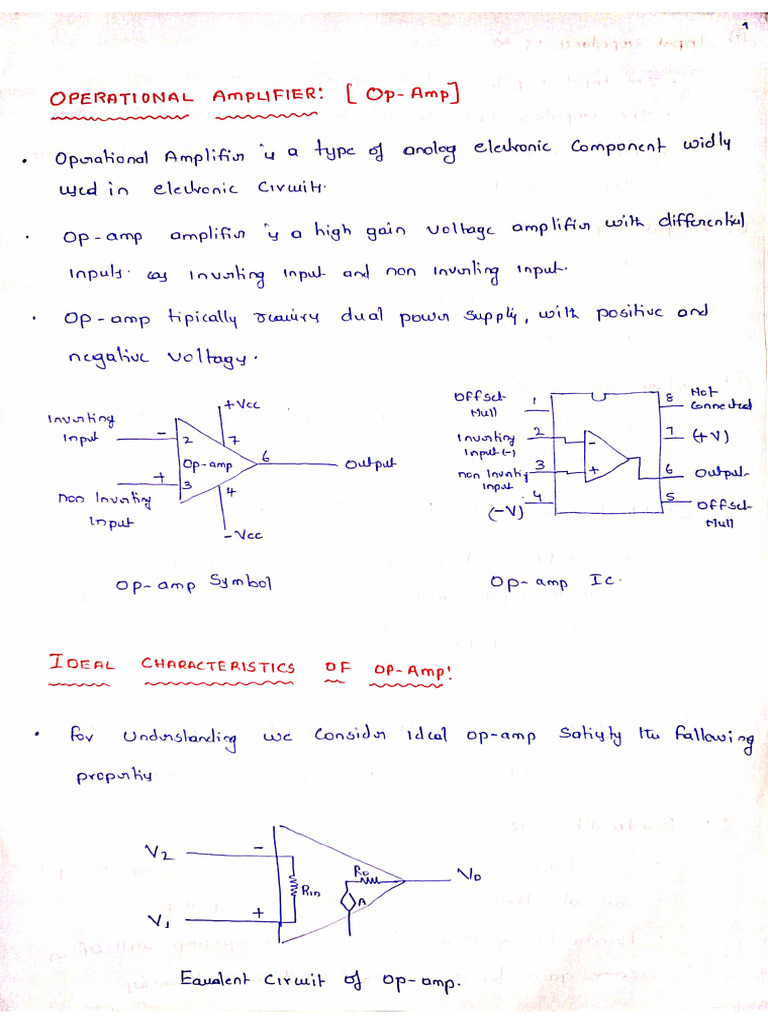 1
OPERATIONAL AMPLIFIER: [ Op-Amp]
• Operational Amplifier is a type of analog electronic component widly
used in electronic circuits.
• Op-amp amplifier is a high gain voltage amplifier with differential
inputs. as inverting input and non inverting input.
• Op-amp tipically require dual power supply, with positive and
negative voltage.
+Vcc
Inverting
Input
−
2
7
Op-amp
6
Output
+
3
Non Inverting
Input
4
−Vcc
Op-amp Symbol
Offset
Null
1
8
Not
Connected
Inverting
Input(-)
2
−
7
(+V)
non Inverting
Input
3
+
6
Output
4
(−V)
5
Offset
Null
Op-amp Ic.
IDEAL CHARACTERISTICS OF OP-Amp:
• for understanding we consider ideal op-amp satisfy the following
property
V2
−
Ro
Vo
Rin
A
V1
+
Equalent circuit of op-amp.